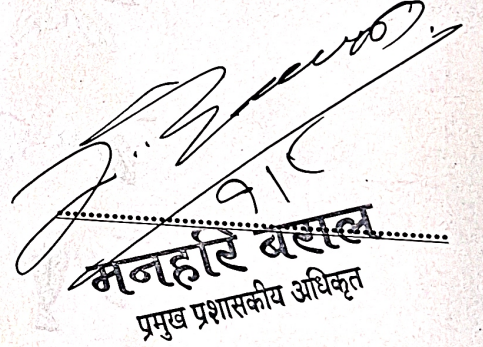 ९।८
मनहरि बराल
प्रमुख प्रशासकीय अधिकृत